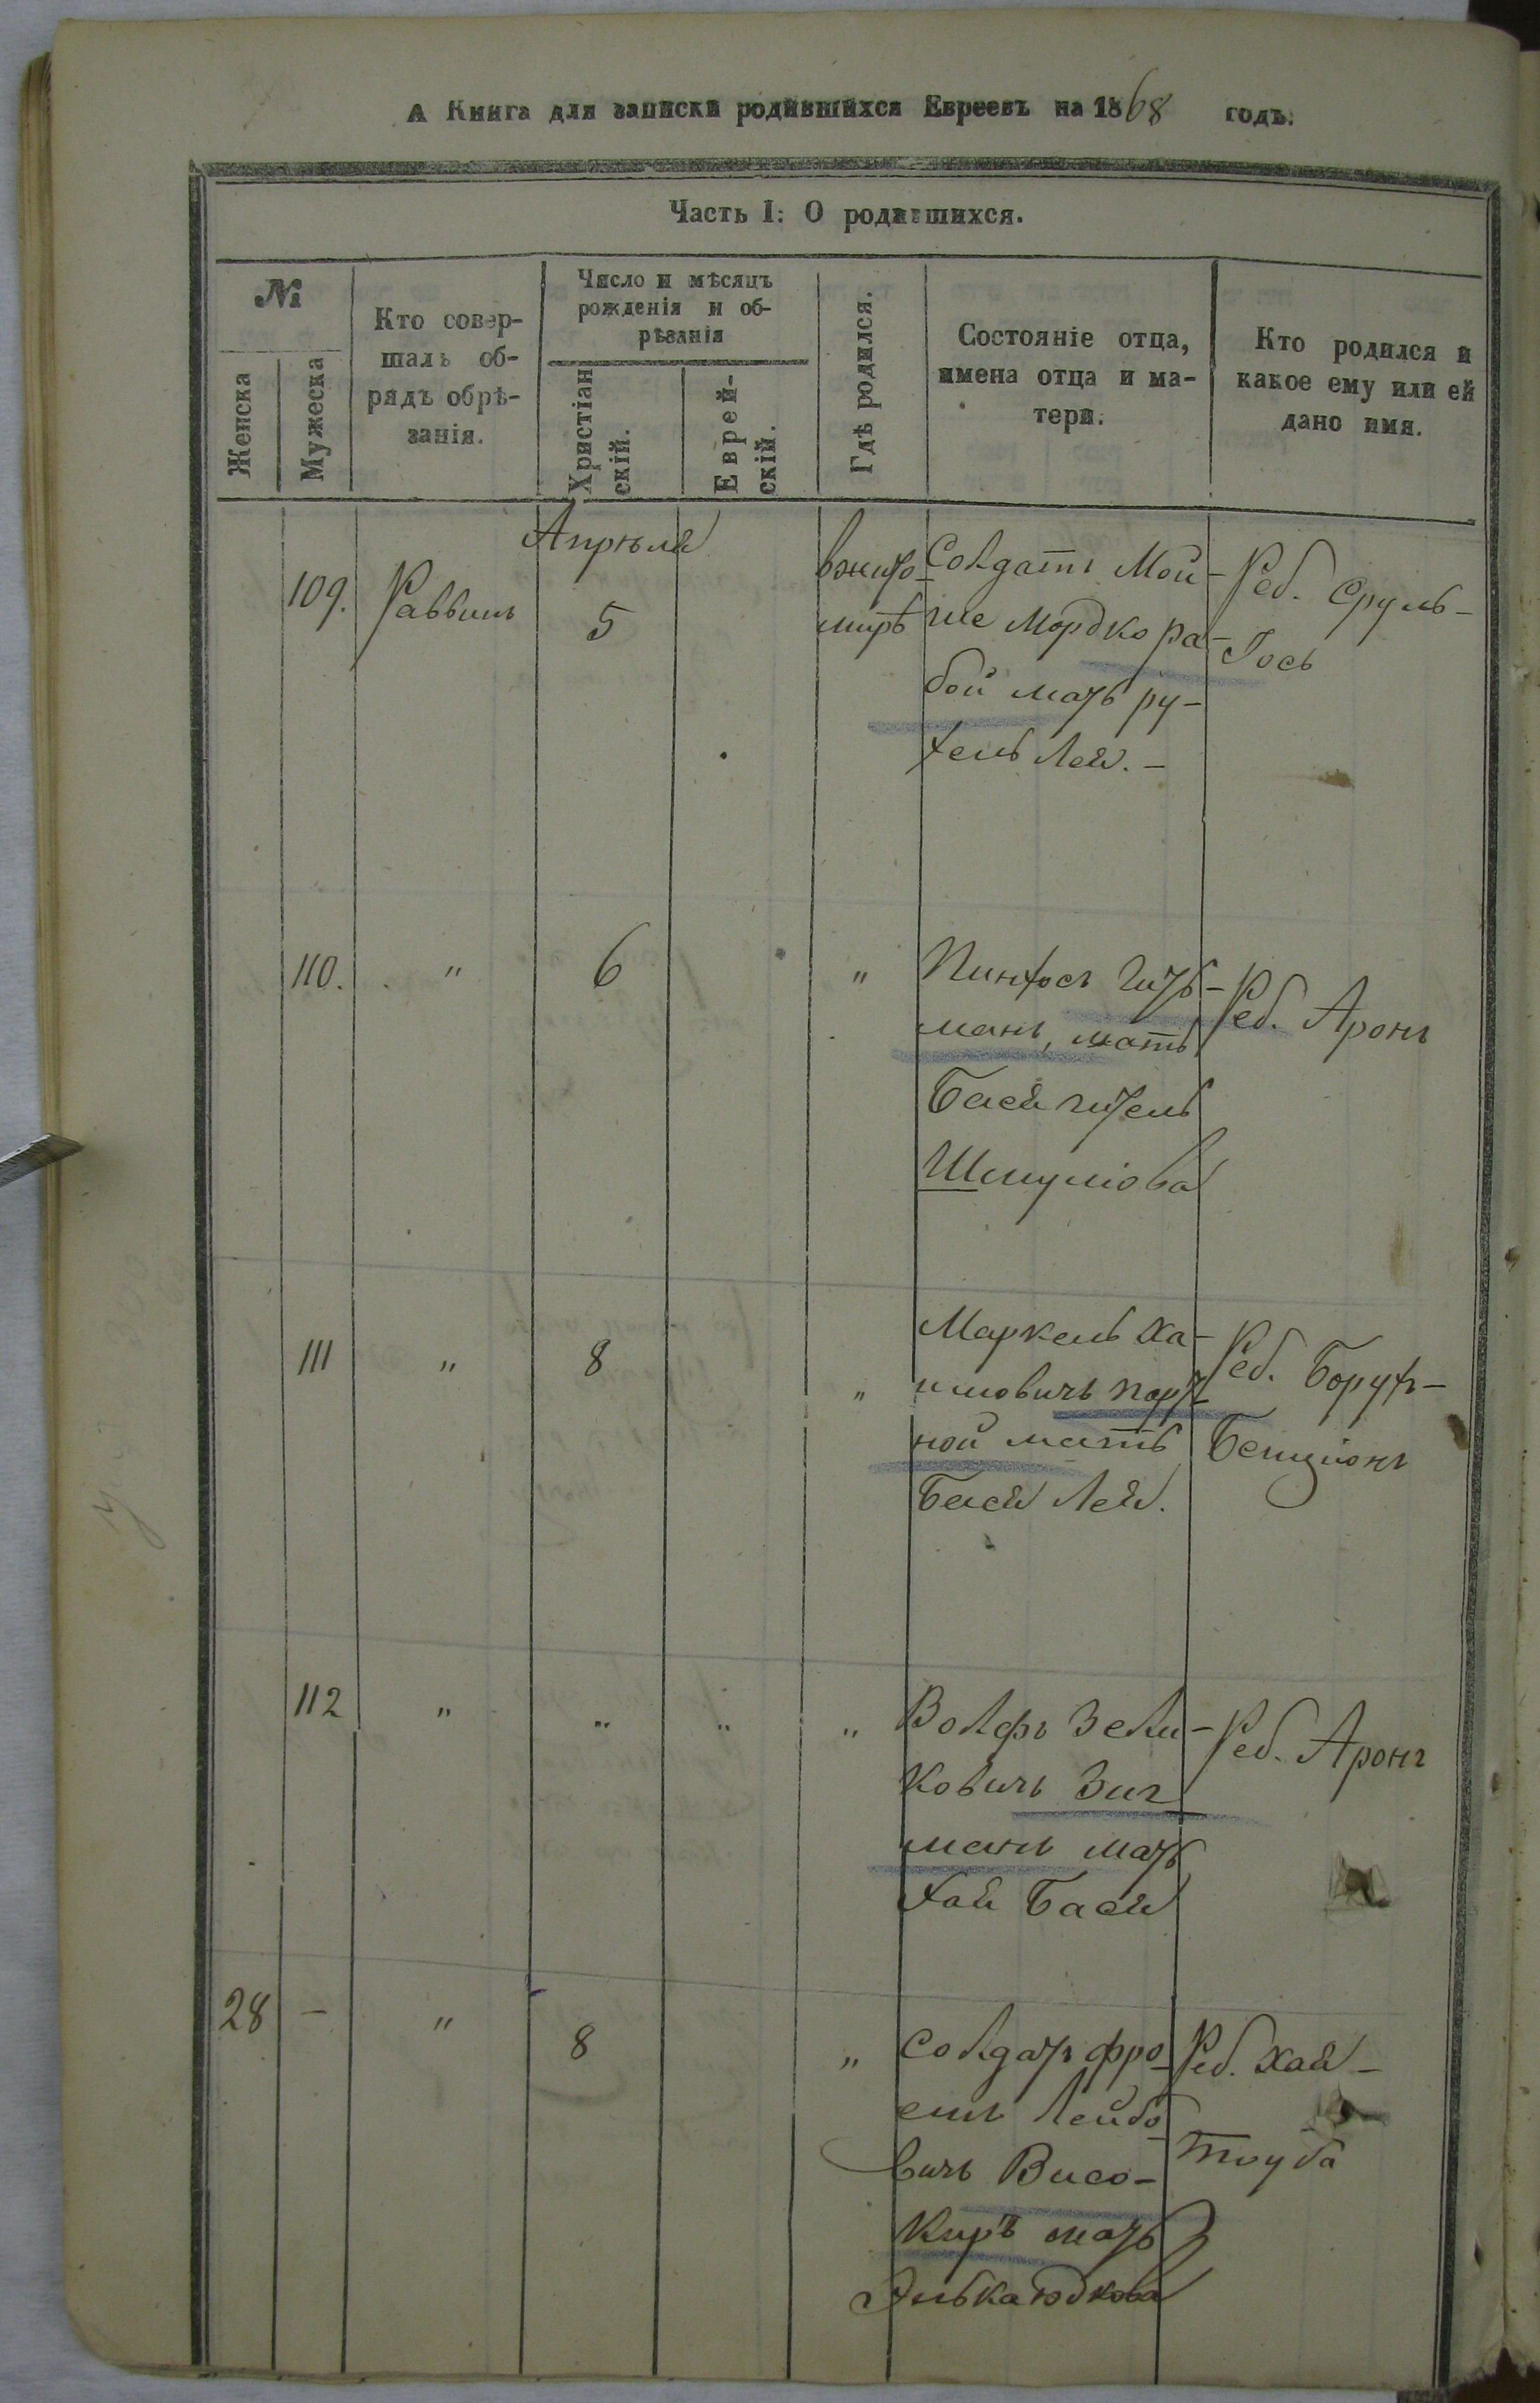 А Книга для записки родившихся Евреевъ на 1868 годъ.
Часть I: О родившихся.
№
Женска
Мужеска
Кто совер-
шалъ об-
рядъ обрѣ-
занія.
Число и мѣсяцъ
рожденія и об-
рѣзанія
Христіан
скій.
Еврей-
скій.
Гдѣ родился.
Состояніе отца,
имена отца и ма-
тери.
Кто родился и
какое ему или ей
дано имя.
Апрѣля
109.
Раввинъ
5
вжито-
мирѣ
Солдатъ Мой-
ше Мордко ра-
бой мать ру-
хель Лея. -
Реб. Сруль-
Іось
110.
"
6
"
Пинхосъ Гит-
манъ, мать
Бася гитель
Шмулiова
Реб. Аронъ
111
"
8
"
Маркель Ха-
имовичъ порт-
ной мать
Бася Лея.
Реб. Борухъ-
Бенціонъ
112
"
"
"
"
Волфъ Зели-
ковичъ Зиг
манъ мать
Хая Бася
Реб. Аронъ
28
-
"
8
"
Солдатъ фро-
емъ Лейбо-
вичъ Висо-
киръ мать
Элька Юдкова
Реб. Хая-
Тоуба